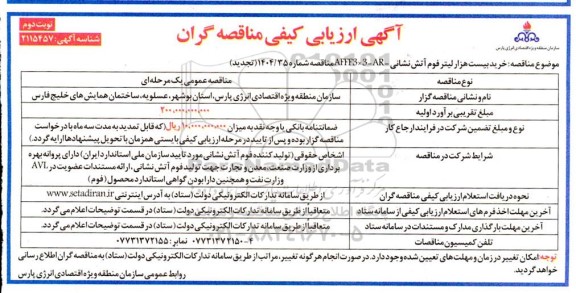 نوبت دوم
شناسه آگهی: ۲۱۱۵۴۵۷
آگهی ارزیابی کیفی مناقصه گران
سازمان منطقه ویژه اقتصادی انرژی پارس
موضوع مناقصه: خرید بیست هزار لیتر فوم آتش نشانی - AFFF3-3-AR مناقصه شماره ۱۴۰۴/۳۵ (تجدید)
نوع مناقصه
مناقصه عمومی یک مرحله ای
نام و نشانی مناقصه گزار
سازمان منطقه ویژه اقتصادی انرژی پارس، استان بوشهر، عسلویه، ساختمان همایش های خلیج فارس
مبلغ تقریبی برآورد اولیه
۲۰۰,۰۰۰,۰۰۰,۰۰۰
نوع و مبلغ تضمین شرکت در فرایند ارجاع کار
ضمانتنامه بانکی یا وجه نقد به میزان ۱۰,۰۰۰,۰۰۰,۰۰۰ ریال (که قابل تمدید به مدت سه ماه با درخواست
مناقصه گزار بوده و پس از تایید در مرحله ارزیابی کیفی بایستی همزمان با تحویل پیشنهادها ارایه گردد.)
شرایط شرکت در مناقصه
اشخاص حقوقی (تولید کننده فوم آتش نشانی مورد تایید سازمان ملی استاندارد ایران) دارای پروانه بهره
برداری از وزارت صنعت، معدن و تجارت جهت تولید فوم آتش نشانی، ارائه مستندات عضویت در AVL
وزارت نفت و همچنین دارا بودن گواهی استاندارد محصول (فوم)
نحوه دریافت استعلام ارزیابی کیفی مناقصه گران
از طریق سامانه تدارکات الکترونیکی دولت (ستاد) به آدرس اینترنتی www.setadiran.ir
آخرین مهلت اخذ فرم های استعلام ارزیابی کیفی از سامانه ستاد
متعاقبا از طریق سامانه تدارکات الکترونیکی دولت (ستاد) در قسمت توضیحات اعلام می گردد.
آخرین مهلت بارگذاری مدارک و مستندات در سامانه ستاد
متعاقبا از طریق سامانه تدارکات الکترونیکی دولت (ستاد) در قسمت توضیحات اعلام می گردد.
تلفن کمیسیون مناقصات
۰۷۷۳۱۳۷۲۱۵۰-۴ نمابر: ۰۷۷۳۱۳۷۲۱۵۵
توجه امکان تغییر در زمان و مهلت های تعیین شده وجود دارد. در صورت انجام هر گونه تغییر، مراتب از طریق سامانه تدارکات الکترونیکی دولت (ستاد) به مناقصه گران اطلاع رسانی
خواهد گردید.
روابط عمومی سازمان منطقه ویژه اقتصادی انرژی پارس